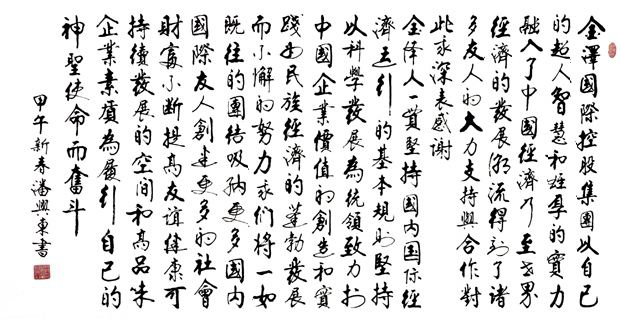 金澤國際控股集團以自己
的超人智慧和雄厚的實力
融入了中國經濟乃至世界
經濟的發展潮流得到了諸
多友人的大力支持與合作對
此我深表感谢
金泽人一貫堅持國内国际經
濟互行的基本規則堅持
以科學發展為統領致力於
中國企業價值的創造和實
踐為民族經濟的蓬勃發展
而不懈的努力我们将一如
既往的團结吸納更多國内
國際友人創建更多的社會
財富不斷提高友誼健康可
持續發展的空间和高品味
企業素質為履行自己的
神聖使命而奮斗
甲午新春潘興東書